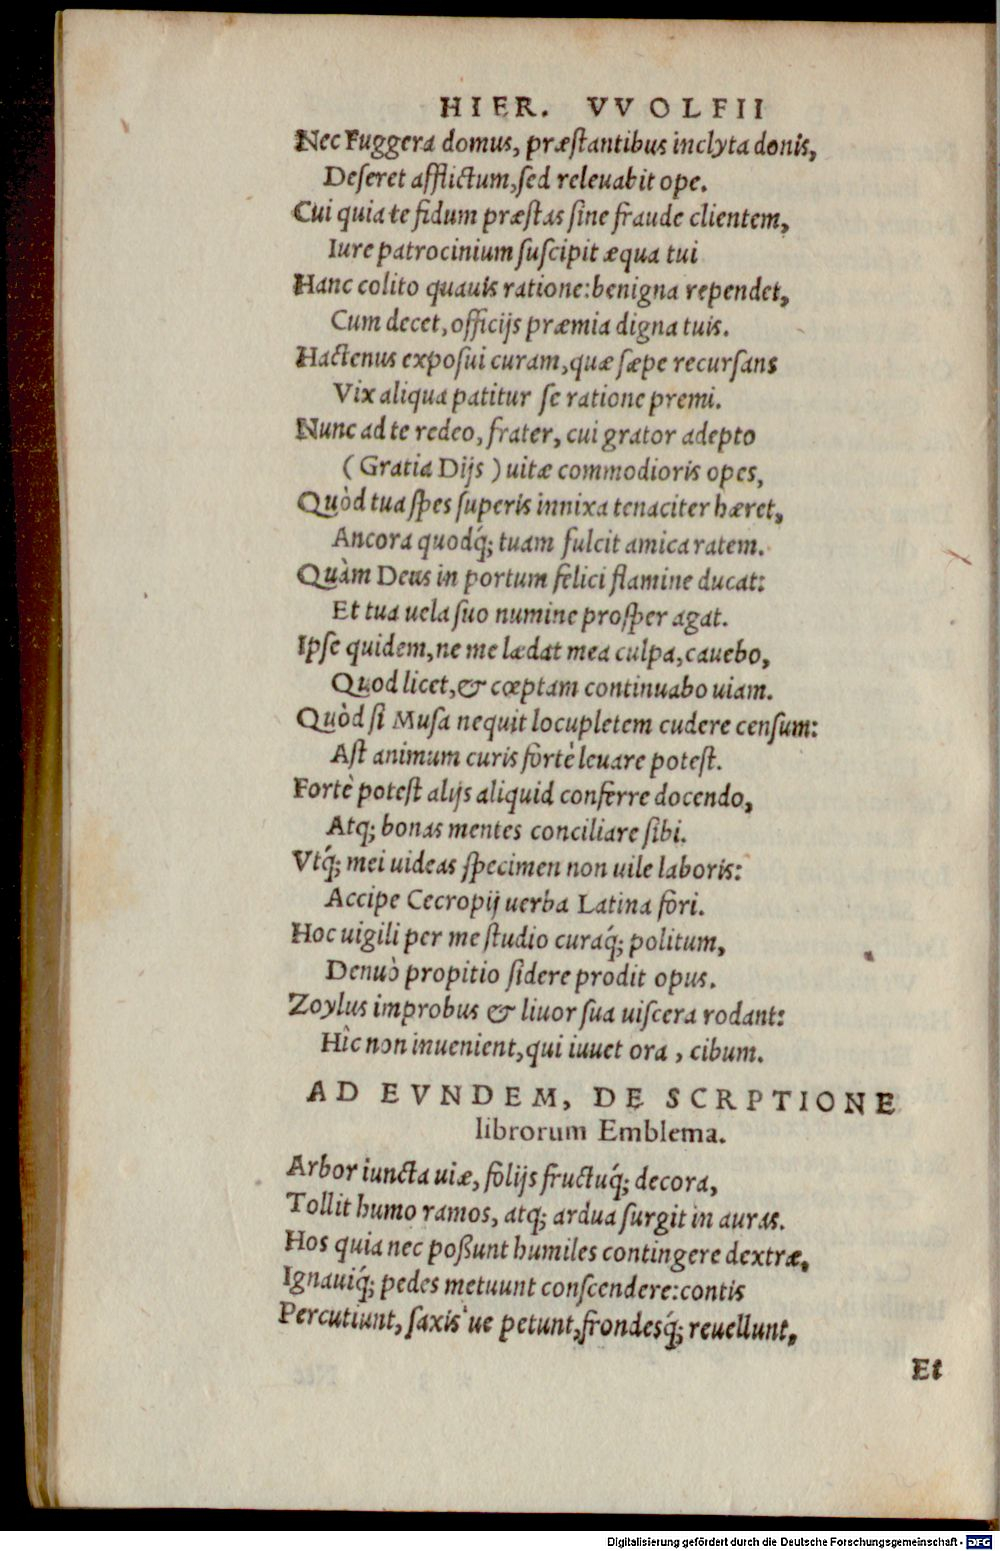 HIER. VVOLFII
Nec Fuggera domus, præſtantibus inclyta donis,
Deſeret afflictum, ſed releuabit ope.
Cui quia te fidum præſtas ſine fraude clientem,
Iure patrocinium ſuſcipit æqua tui
Hanc colito quauis ratione: benigna rependet,
Cum decet, officijs præmia digna tuis.
Hactenus expoſui curam, quæ ſæpe recurſans
Vix aliqua patitur ſe ratione premi.
Nunc ad te redeo, frater, cui grator adepto
(Gratia Dijs) uitæ commodioris opes,
Quòd tua ſpes ſuperis innixa tenaciter hæret,
Ancora quodq́; tuam fulcit amica ratem.
Quàm Deus in portum felici flamine ducat:
Et tua uela ſuo numine proſper agat.
Ipſe quidem, ne me lædat mea culpa, cauebo,
Quod licet, & cœptam continuabo uiam.
Quòd ſi Muſa nequit locupletem cudere cenſum:
Aſt animum curis fortè leuare poteſt.
Fortè poteſt alijs aliquid conferre docendo,
Atq; bonas mentes conciliare ſibi.
Vtq́; mei uideas ſpecimen non uile laboris:
Accipe Cecropij uerba Latina fori.
Hoc uigili per me ſtudio curaq́; politum,
Denuò propitio ſidere prodit opus.
Zoylus improbus & liuor ſua uiſcera rodant:
Hîc non inuenient, qui iuuet ora, cibum.
AD EVNDEM, DE SCRPTIONE
librorum Emblema.
Arbor iuncta uiæ, folijs fructuq́; decora,
Tollit humo ramos, atq; ardua ſurgit in auras.
Hos quia nec poßunt humiles contingere dextræ,
Ignauiq́; pedes metuunt conſcendere: contis
Percutiunt, ſaxis'ue petunt, frondesq́; reuellunt,
Et
Digitalisierung gefördert durch die Deutsche Forschungsgemeinschaft - DFG